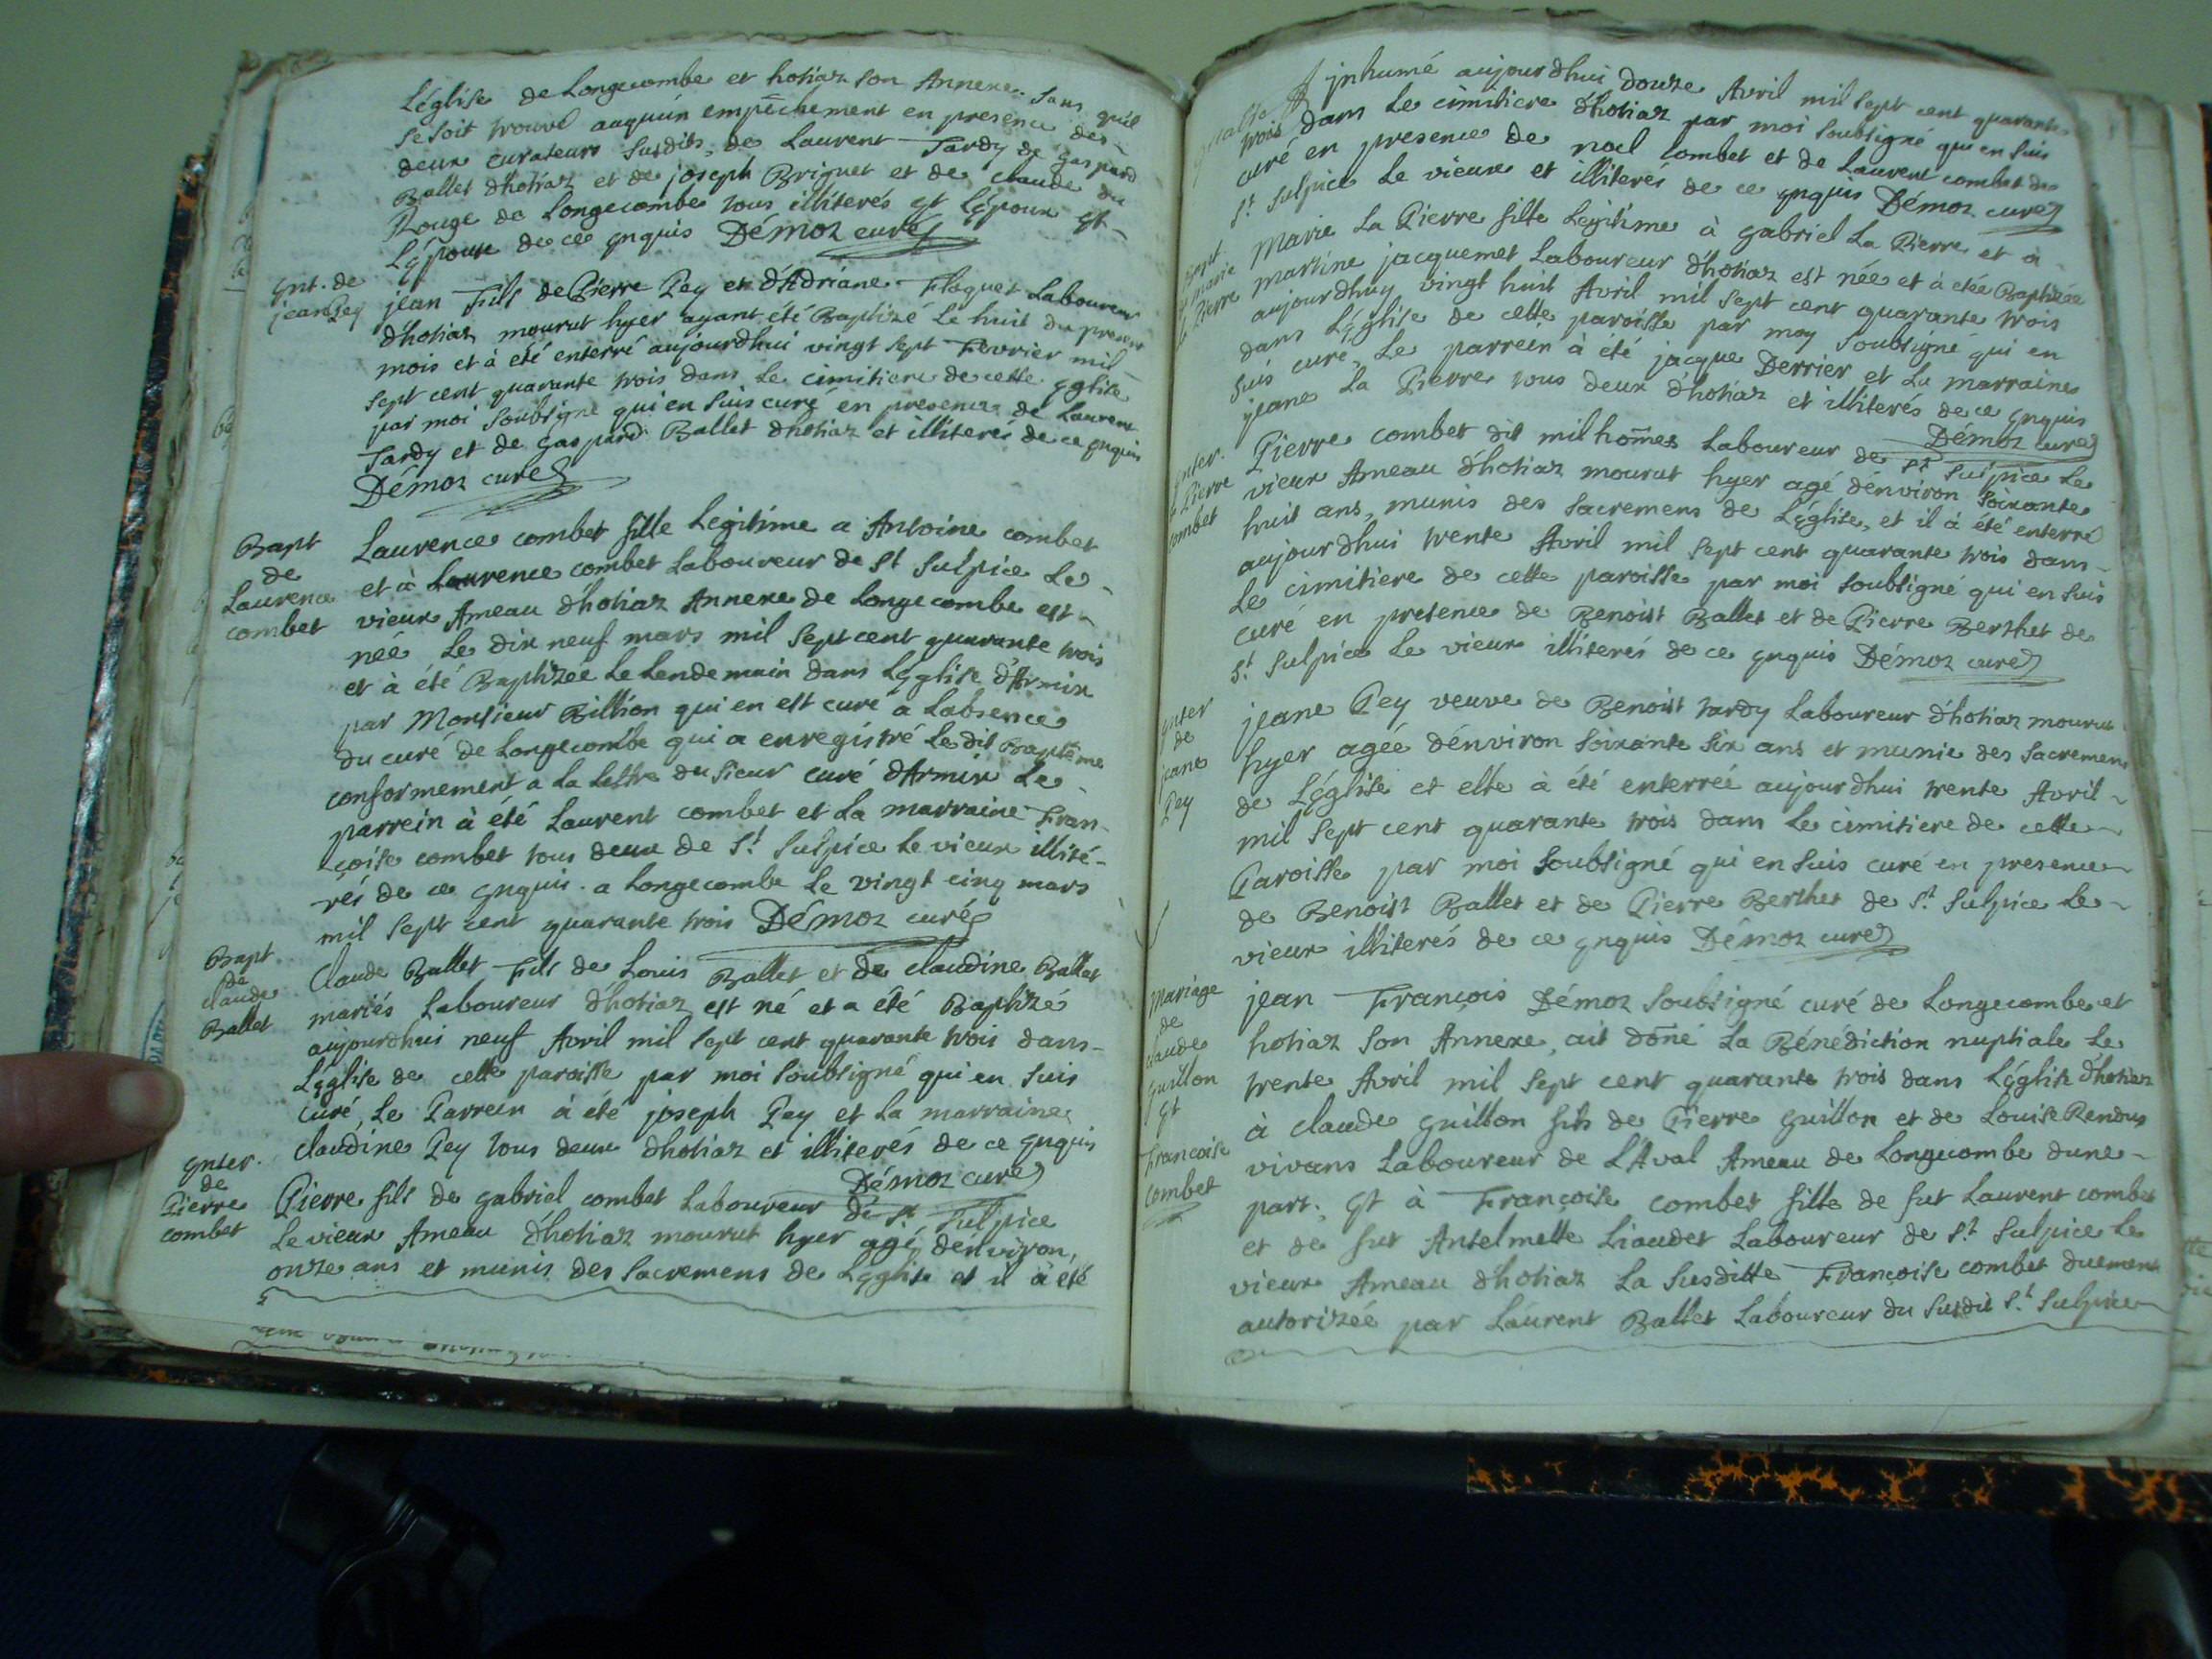 Léglise de Longecombe et hotiaz son Annexe. sans qu'il
se soit trouvé auquún empêchement en presence des
deux curateurs susdits, de Laurent Tardy de gaspard
Ballet d'hotiaz et de joseph Briguet et de claude du
Rouge de Longecombe tous illiterés et Lépoux et
Lépouse de ce enquis Démoz curé
ent. de
jean Pey
jean Fils de Pierre Pey et d'Adriane Floquet Laboureur
d'hotiaz mourut hyer ayant été Baptizé Le huit du present
mois et à été enterré aujourdhui vingt sept Fevrier mil
sept cent quarante trois dans Le cimitiere de cette eglise
par moi soubsigné qui en suis curé en presence de Laurent
Tardy et de gaspard Ballet dhotiaz et illiterés de ce enquis
Démoz curé
Bapt
de
Laurence
combet
Laurence combet fille Legitime a Antoine combet
et à Laurence combet Laboureur de St Sulpice Le
vieux Ameau d'hotiaz Annexe de Longecombe est
née Le dix neuf mars mil sept cent quarante trois
et à été Baptizée Le Lendemain dans Léglise d'Armix
par Monsieur Billion qui en est curé a Labsence
du curé de Longecombe qui a enregistré Le dit Baptême
conformement a La Lettre du sieur curé d'Armix Le
parrein à été Laurent combet et La marraine Fran-
çoise combet tous deux de St Sulpice Le vieux illité-
rés de ce enquis. a Longecombe Le vingt cinq mars
mil sept cent quarante trois Démoz curé
Bapt.
de
claude
Ballet
Claude Ballet Fils de Louis Ballet et de claudine Ballet
mariés Laboureur d'hotiaz est né et a été Baptizé
aujourdhui neuf Avril mil sept cent quarante trois dans
Léglise de cette paroisse par moi soubsigné qui en suis
curé, Le Parrein à eté joseph Pey et La marraine
claudine Pey tous deux dhotiaz et illiterés de ce enquis
Démoz curé
enter.
de
Pierre
combet
Pierre fils de gabriel combet Laboureur de St. Sulpice
Le vieux Ameau d'hotiaz mourut hyer agé dénviron,
onze ans et munis des sacremens de Léglise et il à été
jnhumé aujourdhui douze Avril mil sept cent quarante
trois dans Le cimitiere d'hotiaz par moi soubsigné qui en suis
curé en presence de noel combet et de Laurent combet de
St. Sulpice Le vieux et illiterés de ce enquis Démoz curé
bapt.
de marie
La Pierre
Marie La Pierre fille Legitime à gabriel La Pierre et à
martine jacquemet Laboureur d'hotiaz est née et à etée Baptizée
aujourdhuy vingt huit Avril mil sept cent quarante trois
dans Léglise de cette paroisse par moy soubsigné qui en
suis curé, Le parrein à été jacque Derrier et La marraine
jeane La Pierre tous deux d'hotiaz et illiterés de ce enquis
Démoz curé
enter.
de Pierre
combet
Pierre combet dit milhomes Laboureur de St Sulpice Le
vieux Ameau d'hotiaz mourut hyer agé dénviron soixante
huit ans, munis des sacremens de Léglise, et il à été enterré
aujourdhui trente Avril mil sept cent quarante trois dans
Le cimitiere de cette paroisse par moi soubsigné qui en suis
curé en presence de Benoist Ballet et de Pierre Berthet de
St. Sulpice Le vieux illiterés de ce enquis Démoz curé
enter
de
jeane
Pey
jeane Pey veuve de Benoist tardy Laboureur d'hotiaz mourut
hyer agée dénviron soixante six ans et munie des sacremens
de Léglise et elle à été enterrée aujourdhui trente Avril
mil sept cent quarante trois dans Le cimitiere de cette
Paroisse par moi soubsigné qui en suis curé en presence
de Benoist Ballet et de Pierre Berthet de St. Sulpice Le
vieux illiterés de ce enquis Démoz curé
Mariage
de
claude
guillon
et
Francoise
combet
jean François Démoz soubsigné curé de Longecombe et
hotiaz son Annexe, ait doné La Bénédiction nuptiale Le
trente Avril mil sept cent quarante trois dans Léglise d'hotiaz
à claude guillon fils de Pierre guillon et de Louise Rendus
vivans Laboureur de L'Aval Ameau de Longecombe dune
part. et à Françoise combet fille de fut Laurent combet
et de fut Antelmette Liaudet Laboureur de St. Sulpice Le
vieux Ameau d'hotiaz La susditte Françoise combet duement
autorizée par Laurent Ballet Laboureur du susdit St. Sulpice